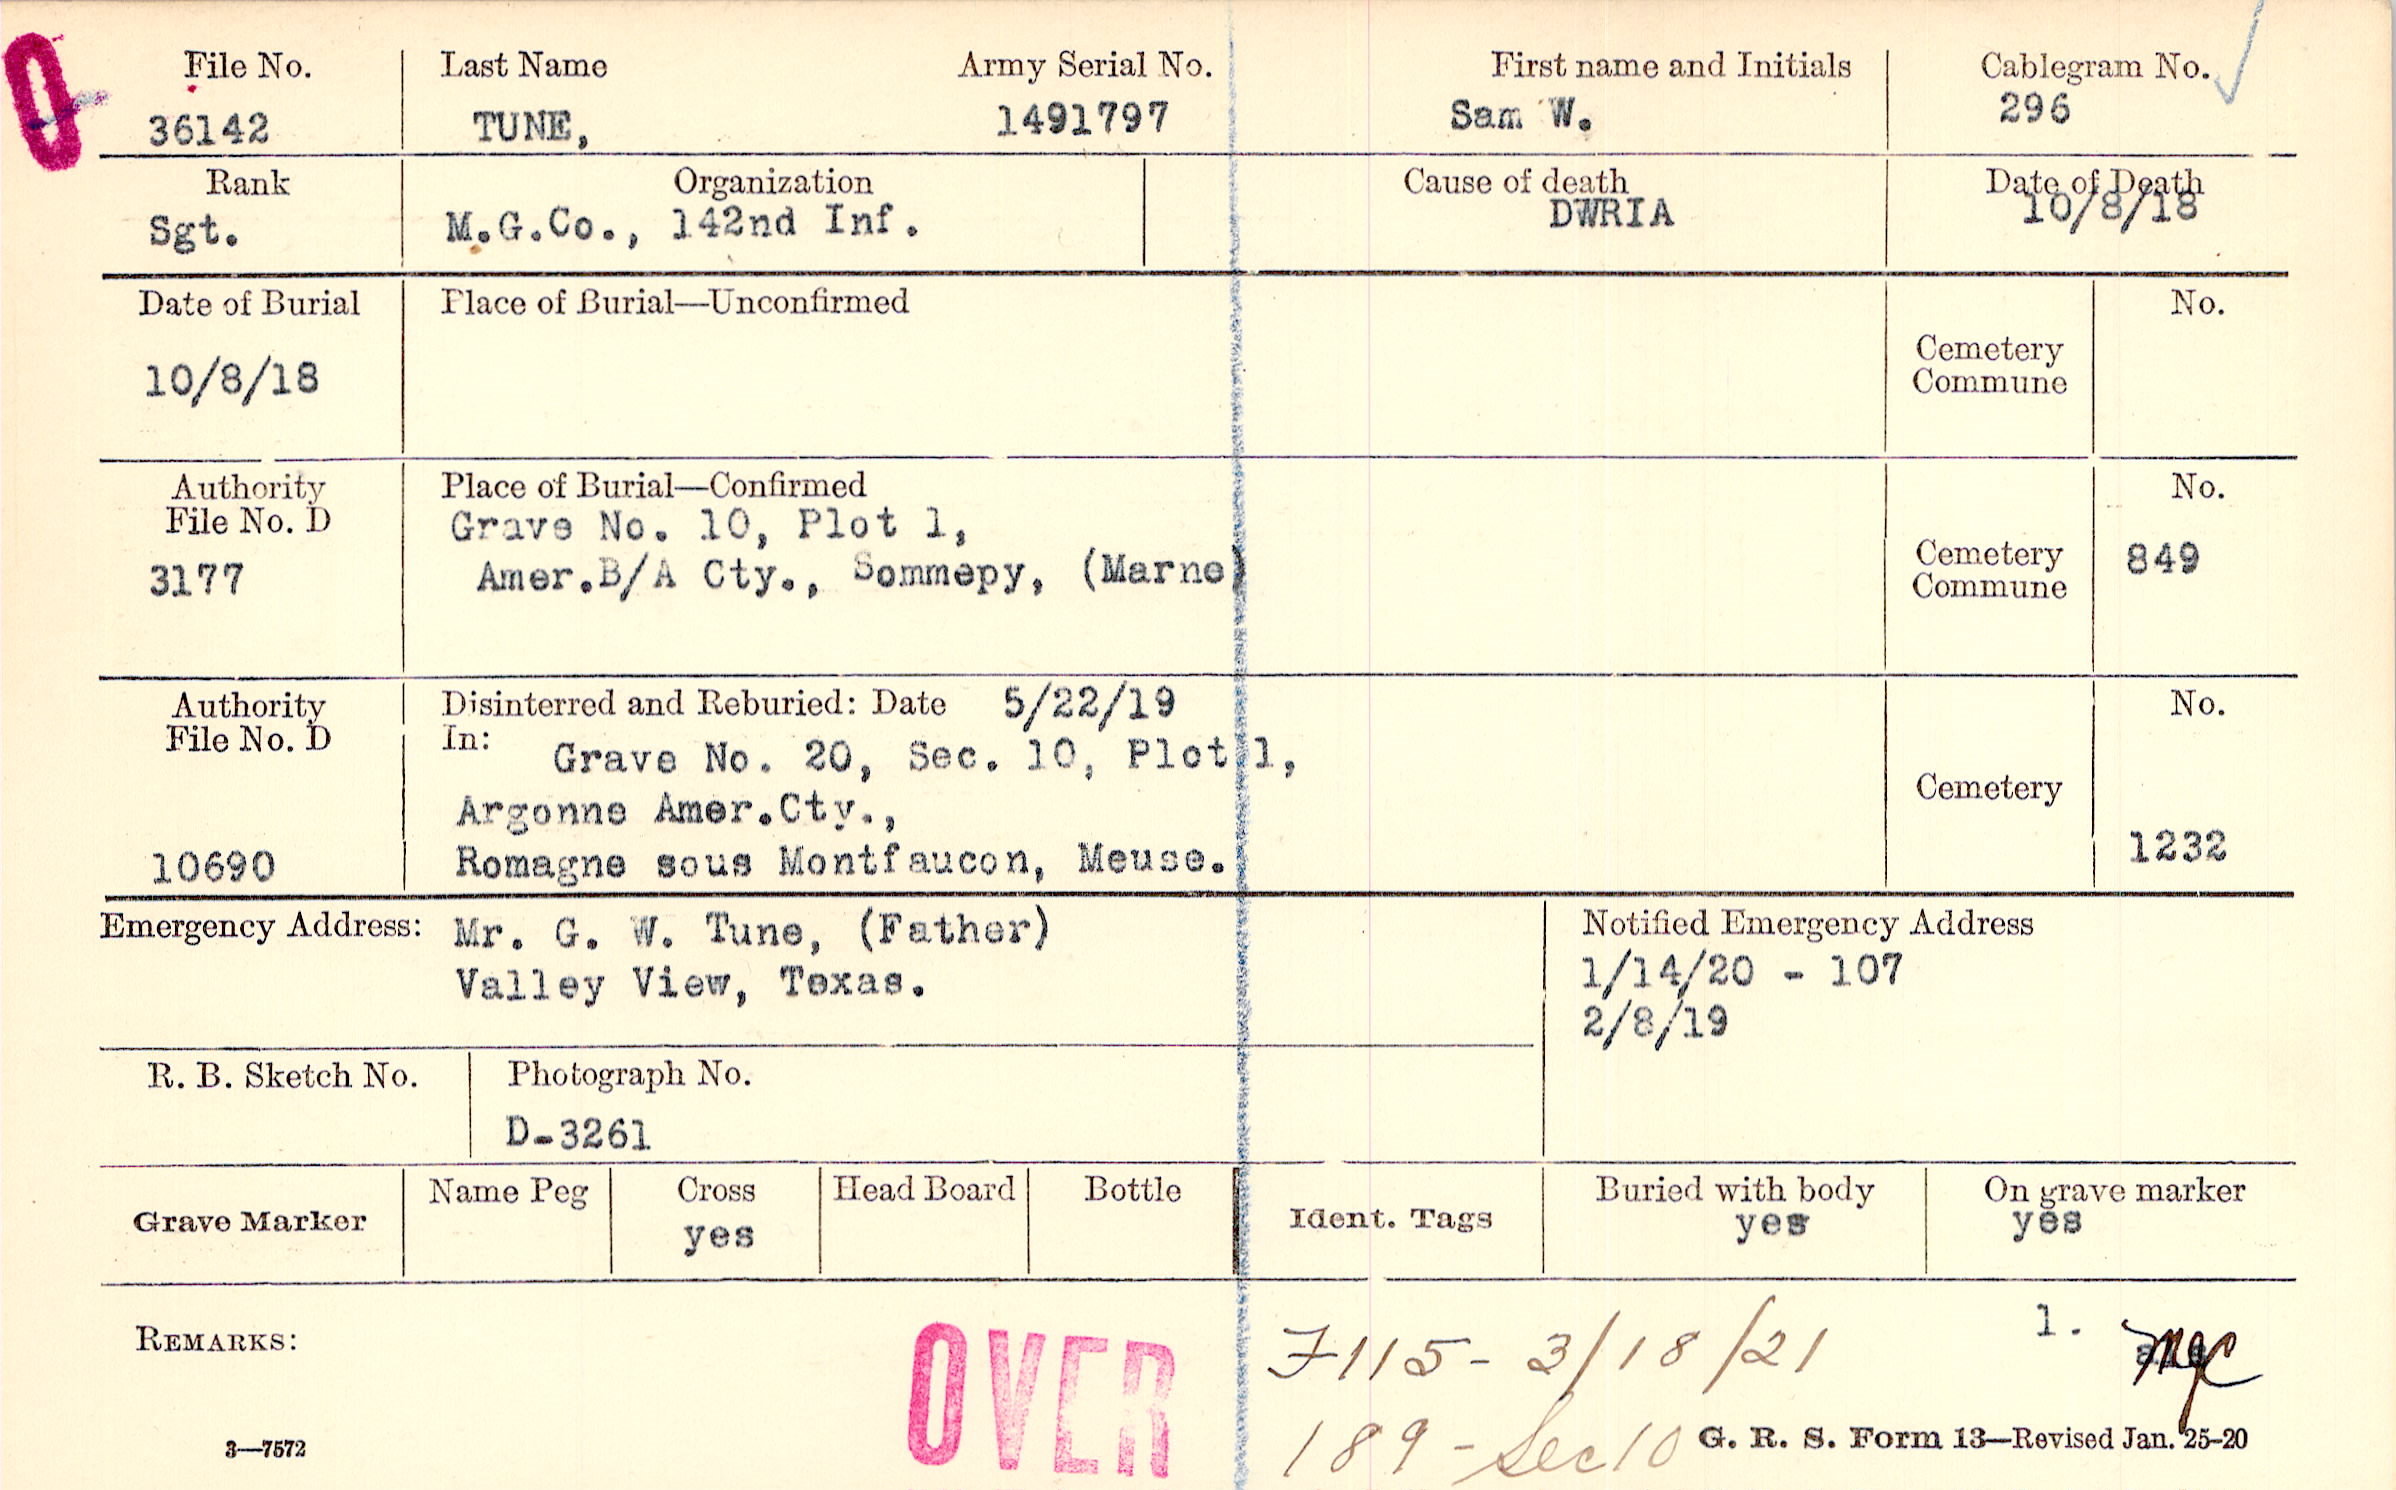 O
File No. Last Name Army Serial No. First name and Initials Cablegram No.
36142 TUNE, 1491797 Sam W. 296
Rank Organization Cause of death Date of Death
Sgt. M.G.Co., 142nd Inf. DWRIA 10/8/18
Date of Burial Place of Burial—Unconfirmed No.
Cemetery
Commune
10/8/18
Authority Place of Burial—Confirmed No.
File No. D Grave No. 10, Plot 1,
3177 Amer.B/A Cty., Sommepy, (Marne) Cemetery 849
Commune
Authority Disinterred and Reburied: Date 5/22/19 No.
File No. D In: Grave No. 20, Sec. 10, Plot 1,
Argonne Amer.Cty., Cemetery
10690 Romagne sous Montfaucon, Meuse. 1232
Emergency Address: Mr. G. W. Tune, (Father) Notified Emergency Address
Valley View, Texas. 1/14/20 - 107
2/8/19
R. B. Sketch No. Photograph No.
D-3261
Grave Marker Name Peg Cross Head Board Bottle Ident. Tags Buried with body On grave marker
yes yes yes
REMARKS: OVER F115- 3/18/21 1.
189 - Sec 10
3—7572 G. R. S. Form 13—Revised Jan. 25-20